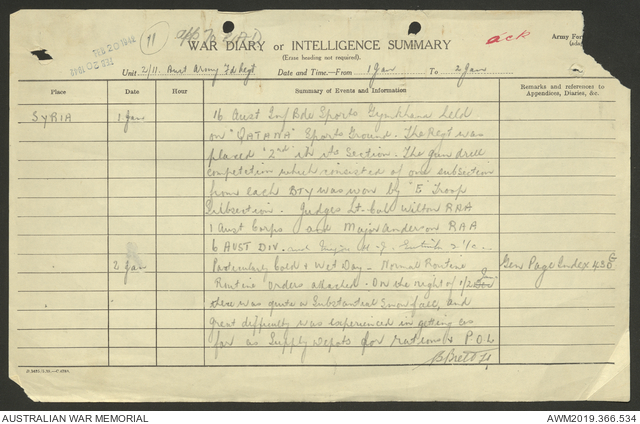 11
WAR DIARY or INTELLIGENCE SUMMARY
(Erase heading not required).
ack
Army For
Unit 2/11 Aust Army Fd Regt. Date and Time—From 1 Jan To 2 Jan
Place Date Hour Summary of Events and Information Remarks and references to Appendices, Diaries, &c.
SYRIA 1 Jan 16 Aust Inf Bde Sports Gymkhana held
on "QATANA" Sports Ground. The Regt was
placed "2nd" in its Section. The gun drill
competition which consisted of one subsection
from each BTY was won by "E" Troop
Subsection. Judges Lt-Col Wilton RAA
1 Aust Corps and Major Anderson RAA
6 AUST DIV. and
2 Jan Particularly Cold & Wet Day - Normal Routine Gen Page Index 438
Routine Orders attached. On the night of 1/2 Jan
there was quite a Substantial Snowfall, and
great difficulty was experienced in getting as
far as Supply Depots for rations & P.O.L
AUSTRALIAN WAR MEMORIAL
AWM2019.366.534